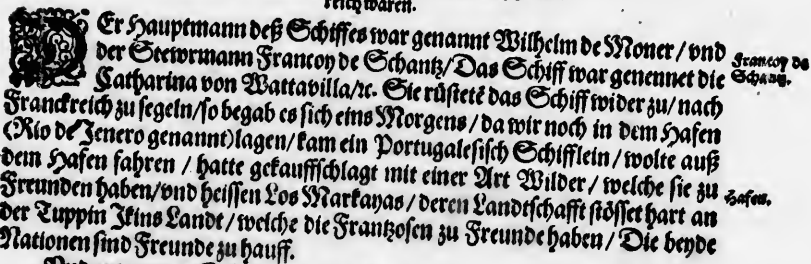 reich waren.
DEr Hauptmann deß Schiffes war genannt Wilhelm de Moner / vnd
der Stewrmann Francoy de Schantz / Das Schiff war genennet die
Catharina von Wattavilla / ⁊c. Sie rüstetẽ das Schiff wider zu / nach
Franckreich zu segeln / so begab es sich eins Morgens / da wir noch in dem Hafen
(Rio de Jenero genannt) lagen / kam ein Portugalesisch Schifflein / wolte auß
dem Hafen fahren / hatte gekauffschlagt mit einer Art Wilder / welche sie zu
Freunden haben / vnd heissen Los Markayas / deren Landtschafft stösset hart an
der Tuppin Ikins Landt / welche die Frantzosen zu Freunde haben / Die beyde
Nationen sind Freunde zu hauff.
Francoy de
Schantz.
Hafen.